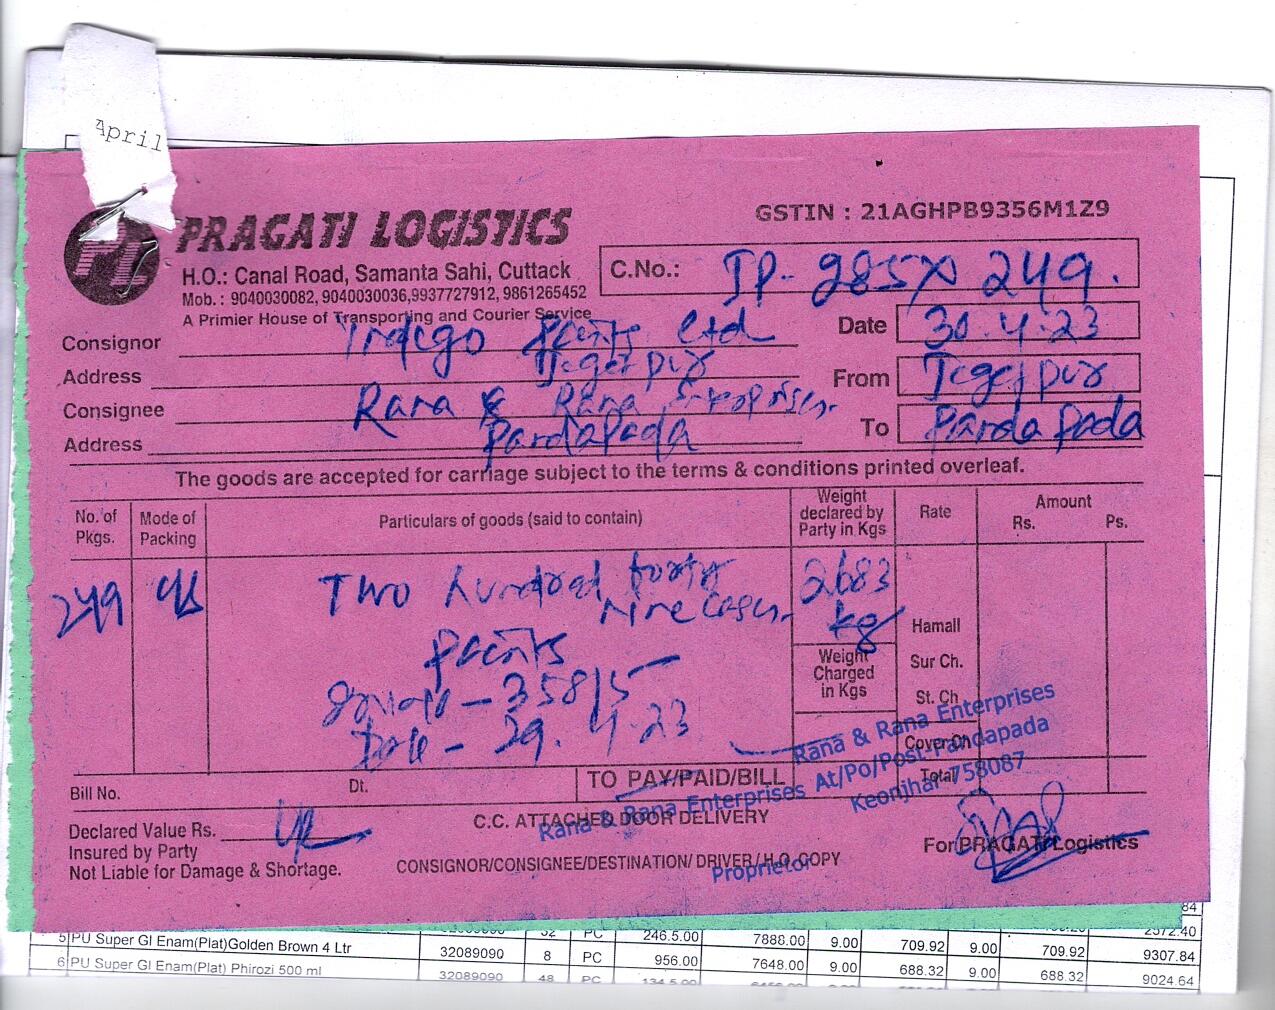 April
PRAGATI LOGISTICS
GSTIN : 21AGHPB9356M1Z9
H.O.: Canal Road, Samanta Sahi, Cuttack
Mob. : 9040030082, 9040030036,9937727912, 9861265452
A Primier House of Transporting and Courier Service
C.No.: IP- 285 X 249.
Consignor Indego Paints Ltd
Date 30.4.23
Address Jegejpur
From Jegejpur
Consignee Rana & Rana Enterprises.
To Pandapada
Address Pandapada
The goods are accepted for carriage subject to the terms & conditions printed overleaf.
No. of Pkgs. Mode of Packing Particulars of goods (said to contain) Weight declared by Party in Kgs Rate Amount Rs. Ps.
249 Two hundred forty 2683
nine cases. kg
Hamali
Paints
Weight Charged in Kgs
Sur Ch.
35815
St. Ch
Date - 29.4.23
Cover Ch
Rana & Rana Enterprises
Bill No. Dt. TO PAY/PAID/BILL Total
Rana & Rana Enterprises At/Po/Post-Pandapada
Keonjhar-758087
Declared Value Rs.
C.C. ATTACHED DOOR DELIVERY
Insured by Party
For PRAGATI Logistics
Not Liable for Damage & Shortage.
CONSIGNOR/CONSIGNEE/DESTINATION/ DRIVER/ H.O. COPY
Proprietor
84
5 PU Super GI Enam(Plat)Golden Brown 4 Ltr 32089090 32 PC 246.5.00 7888.00 9.00 709.92 9.00 709.92 9307.84
6 PU Super GI Enam(Plat) Phirozi 500 ml 32089090 8 PC 956.00 7648.00 9.00 688.32 9.00 688.32 9024.64
48 PC